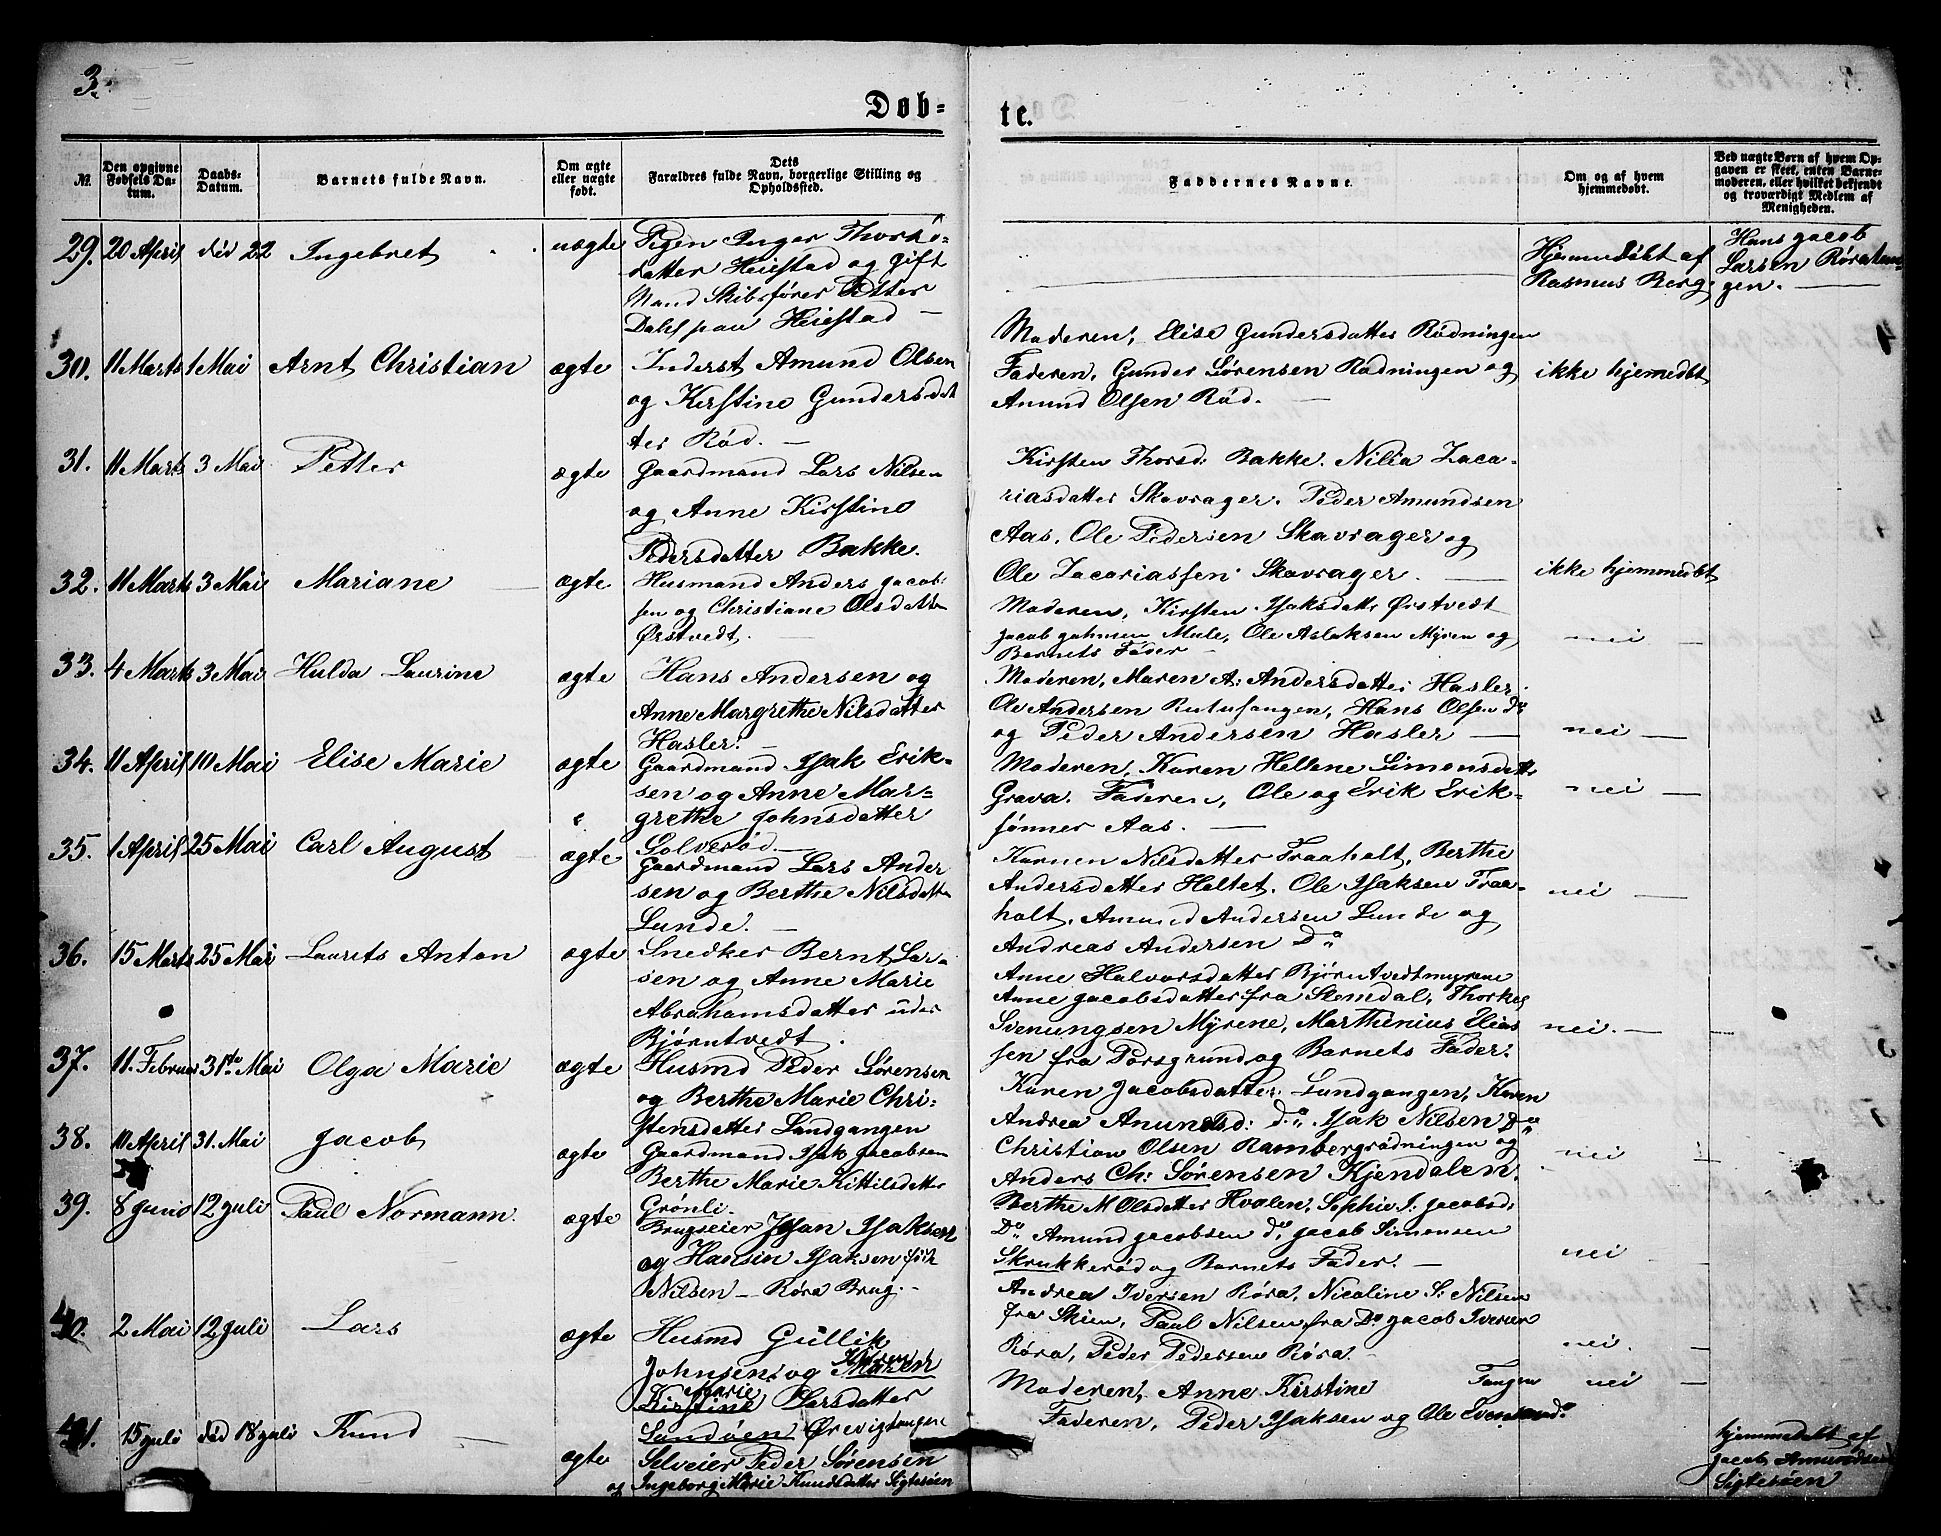 3.
Døb-
te.
№.
Den opgivne Fødsels Da-tum.
Daabs-Datum.
Barnets fulde Navn.
Om ægte eller uægte født.
Dets Forældres fulde Navn, borgerlige Stilling og Opholdssted.
Faddernes Navne.
Om og af hvem hjemmedøbt.
Ved uægte Børn af hvem Op-gaven er skeet, enten Barne-moderen, eller hvilket bekjendt og troværdigt Medlem af Menigheden.
29. 20 April död 22 Ingebret uægte
Pigen Inger Thors-
datter Heiestad og gift
Mand Skibsfører Petter
Heiestad —
Hjemmedöbt af
Rasmus Berg.
Hans Jacob
Larsen Röra
gen. —
30. 11 Marts 1 Mai Arnt Christian ægte
Inderst Amund Olsen
og Kirstine Gundersdat
ter Röd. —
Moderen, Elise Gundersdatter Rödningen
Faderen, Gunder Sörensen Rödningen og
Amund Olsen Röd. —
ikke hjemedbt
31. 11 Marts 3 Mai Petter ægte
Gaardmand Lars Nilsen
og Anne Kirstine
Pedersdatter Bakke.
Kirsten Thorsd: Bakke. Nilia Zaca-
riasdatter Skavrager. Peder Amundsen
Aas. Ole Pedersen Skavrager og
Ole Zacariassen Skavrager. —
ikke hjemmedbt
32. 11 Marts 3 Mai Mariane — ægte
Husmand Anders Jacob-
sen og Christiane Olsdatter
Ørstvedt. —
Moderen, Kirsten Isaksdatt: Ørstvedt
Jacob Johnsen Mule, Ole Aslaksen Myren og
Barnets Fader —
nei —
33. 4 Marts 3 Mai Hulda Laurine ægte
Hans Andersen og
Anne Margrethe Nilsdatter
Hasler. —
Moderen, Maren A: Andersdatter Hasler.
Ole Andersen Hans Olsen Do
og Peder Andersen Hasler —
nei —
34. 11 April 10 Mai Elise Marie ægte
Gaardmand Isak Erik-
sen og Anne Mar-
grethe Johnsdatter
Solveröd. —
Moderen, Karen Hellene Simonsdatt:
Grava. Faderen, Ole og Erik Erik-
sønner Aas. —
nei —
35. 1 April 25 Mai Carl August — ægte
Gaardmand Lars Ander
sen og Berthe Nilsdatter
Lunde. —
Karnen Nilsdatter Traaholt, Berthe
Andersdatter Holtet. Ole Isaksen Traa-
holt. Amund Andersen Lunde og
Andreas Andersen Do
nei —
36. 15 Marts 25 Mai Laurits Anton ægte
Snedker Bernt Lar-
sen og Anne Marie
Abrahamsdatter under
Bjørntvedt.
Anne Halvorsdatter Bjørntvedtmyrene
Anne Jacobsdatter fra Stemdal, Thorkel
Svenungsen Myrene, Marthinius Elias
sen fra Porsgrund og Barnets Fader.
nei. —
37. 11. Februar 31te Mai Olga Marie ægte
Husmd Peder Sörensen
og Berthe Marie Chri-
stensdatter Lundgangen
Karen Jacobsdatter: Lundgangen, Karen
Andrea Anundsd: Do. Isak Nilsen Do
Christian Olsen Rambergrödningen og
Anders Ch: Sörensen Kjendalen.
nei
38. 11 April 31. Mai Jacob ægte
Gaardmand Isak Jacobsen
Berthe Marie Kittilsdatter
Grönli.
Berthe M Olsdatter Hvalen, Sophie I. Jacobsd:
Do Amund Jacobsen do Jacob Simonsen
Skrukkeröd og Barnets Fader. —
nei
39. 8 Juni 12 Juli Paul Normann. ægte
Brugseier Isaksen
og Hansin Isaksen föd
Nilsen — Röra Brug. —
Andrea Iversen Röra, Nicoline S: Nilsen
fra Skien, Paul Nilsen fra Do Jacob Iversen
Röra, Peder Pedersen Röra.
nei.
40. 2 Mai 12 Juli Lars ægte
Husmd Gullik
Johnsen og Maren
Kirstine Marie Larsdatter
Sandöen Ørevigtangen
Moderen, Anne Kirstine Tangen
Faderen, Peder Isaksen og Ole do.
nei —
41. 15 Juli död 18 Juli Knud — ægte
Selveier Peder Sörensen
og Ingeborg Marie Knudsdatter Sigtesöen
hjemmedöbt af
Jacob Amundsen
Sigtesöen